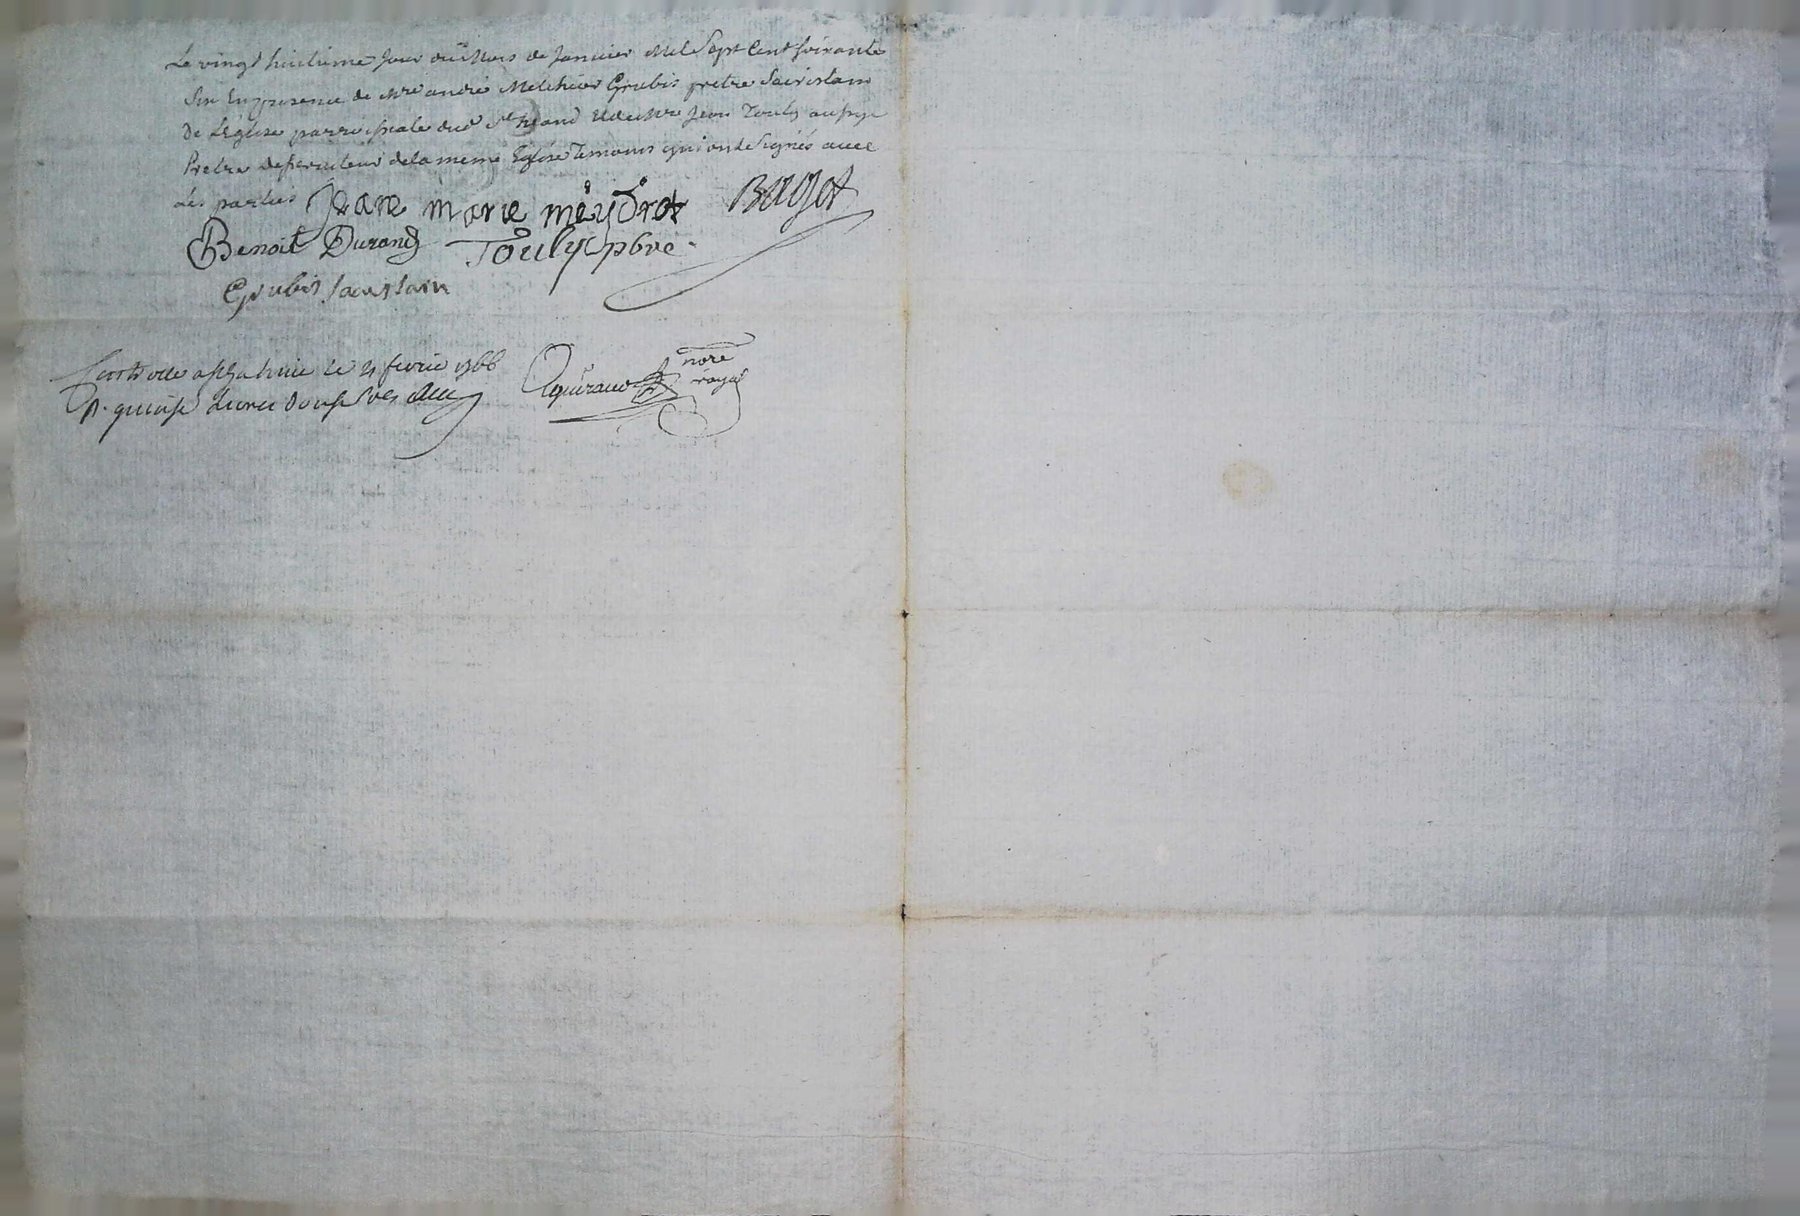 Le vingt huitieme jour du mois de Janvier Mil Sept Cent soixante
Six En presence de Mre andré Melchior Grubis prêtre Sacristain
De L'Eglise parroissiale dud St heand Et de Mre Jean Touly aussy
Pretre desserviteur de la meme Eglise Temoins qui ont Signés avec
Les parties Jeane marie meydret Buyet
Benoit Durand Touly pbre
Grubis Sacristain
Controllé a St heand le fevrier 1766
R. quinse livres douse
nore
royal